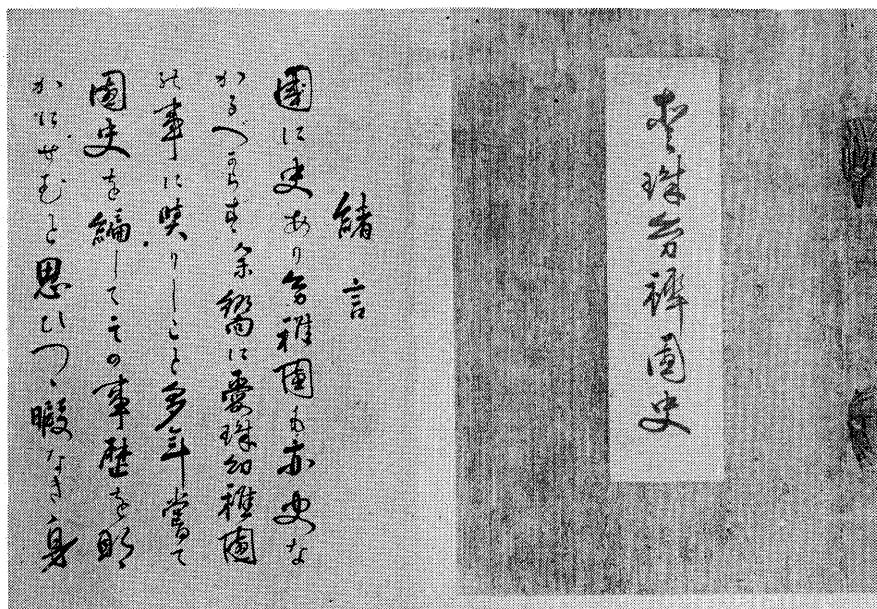 愛珠幼稚園史
緒言
國に史あり幼稚園も亦史な
かるべからす余嚮に愛珠幼稚園
の事に與りしこと多年嘗て
園史を編してその事歴を明
かにせむと思ひつゝ暇なき身